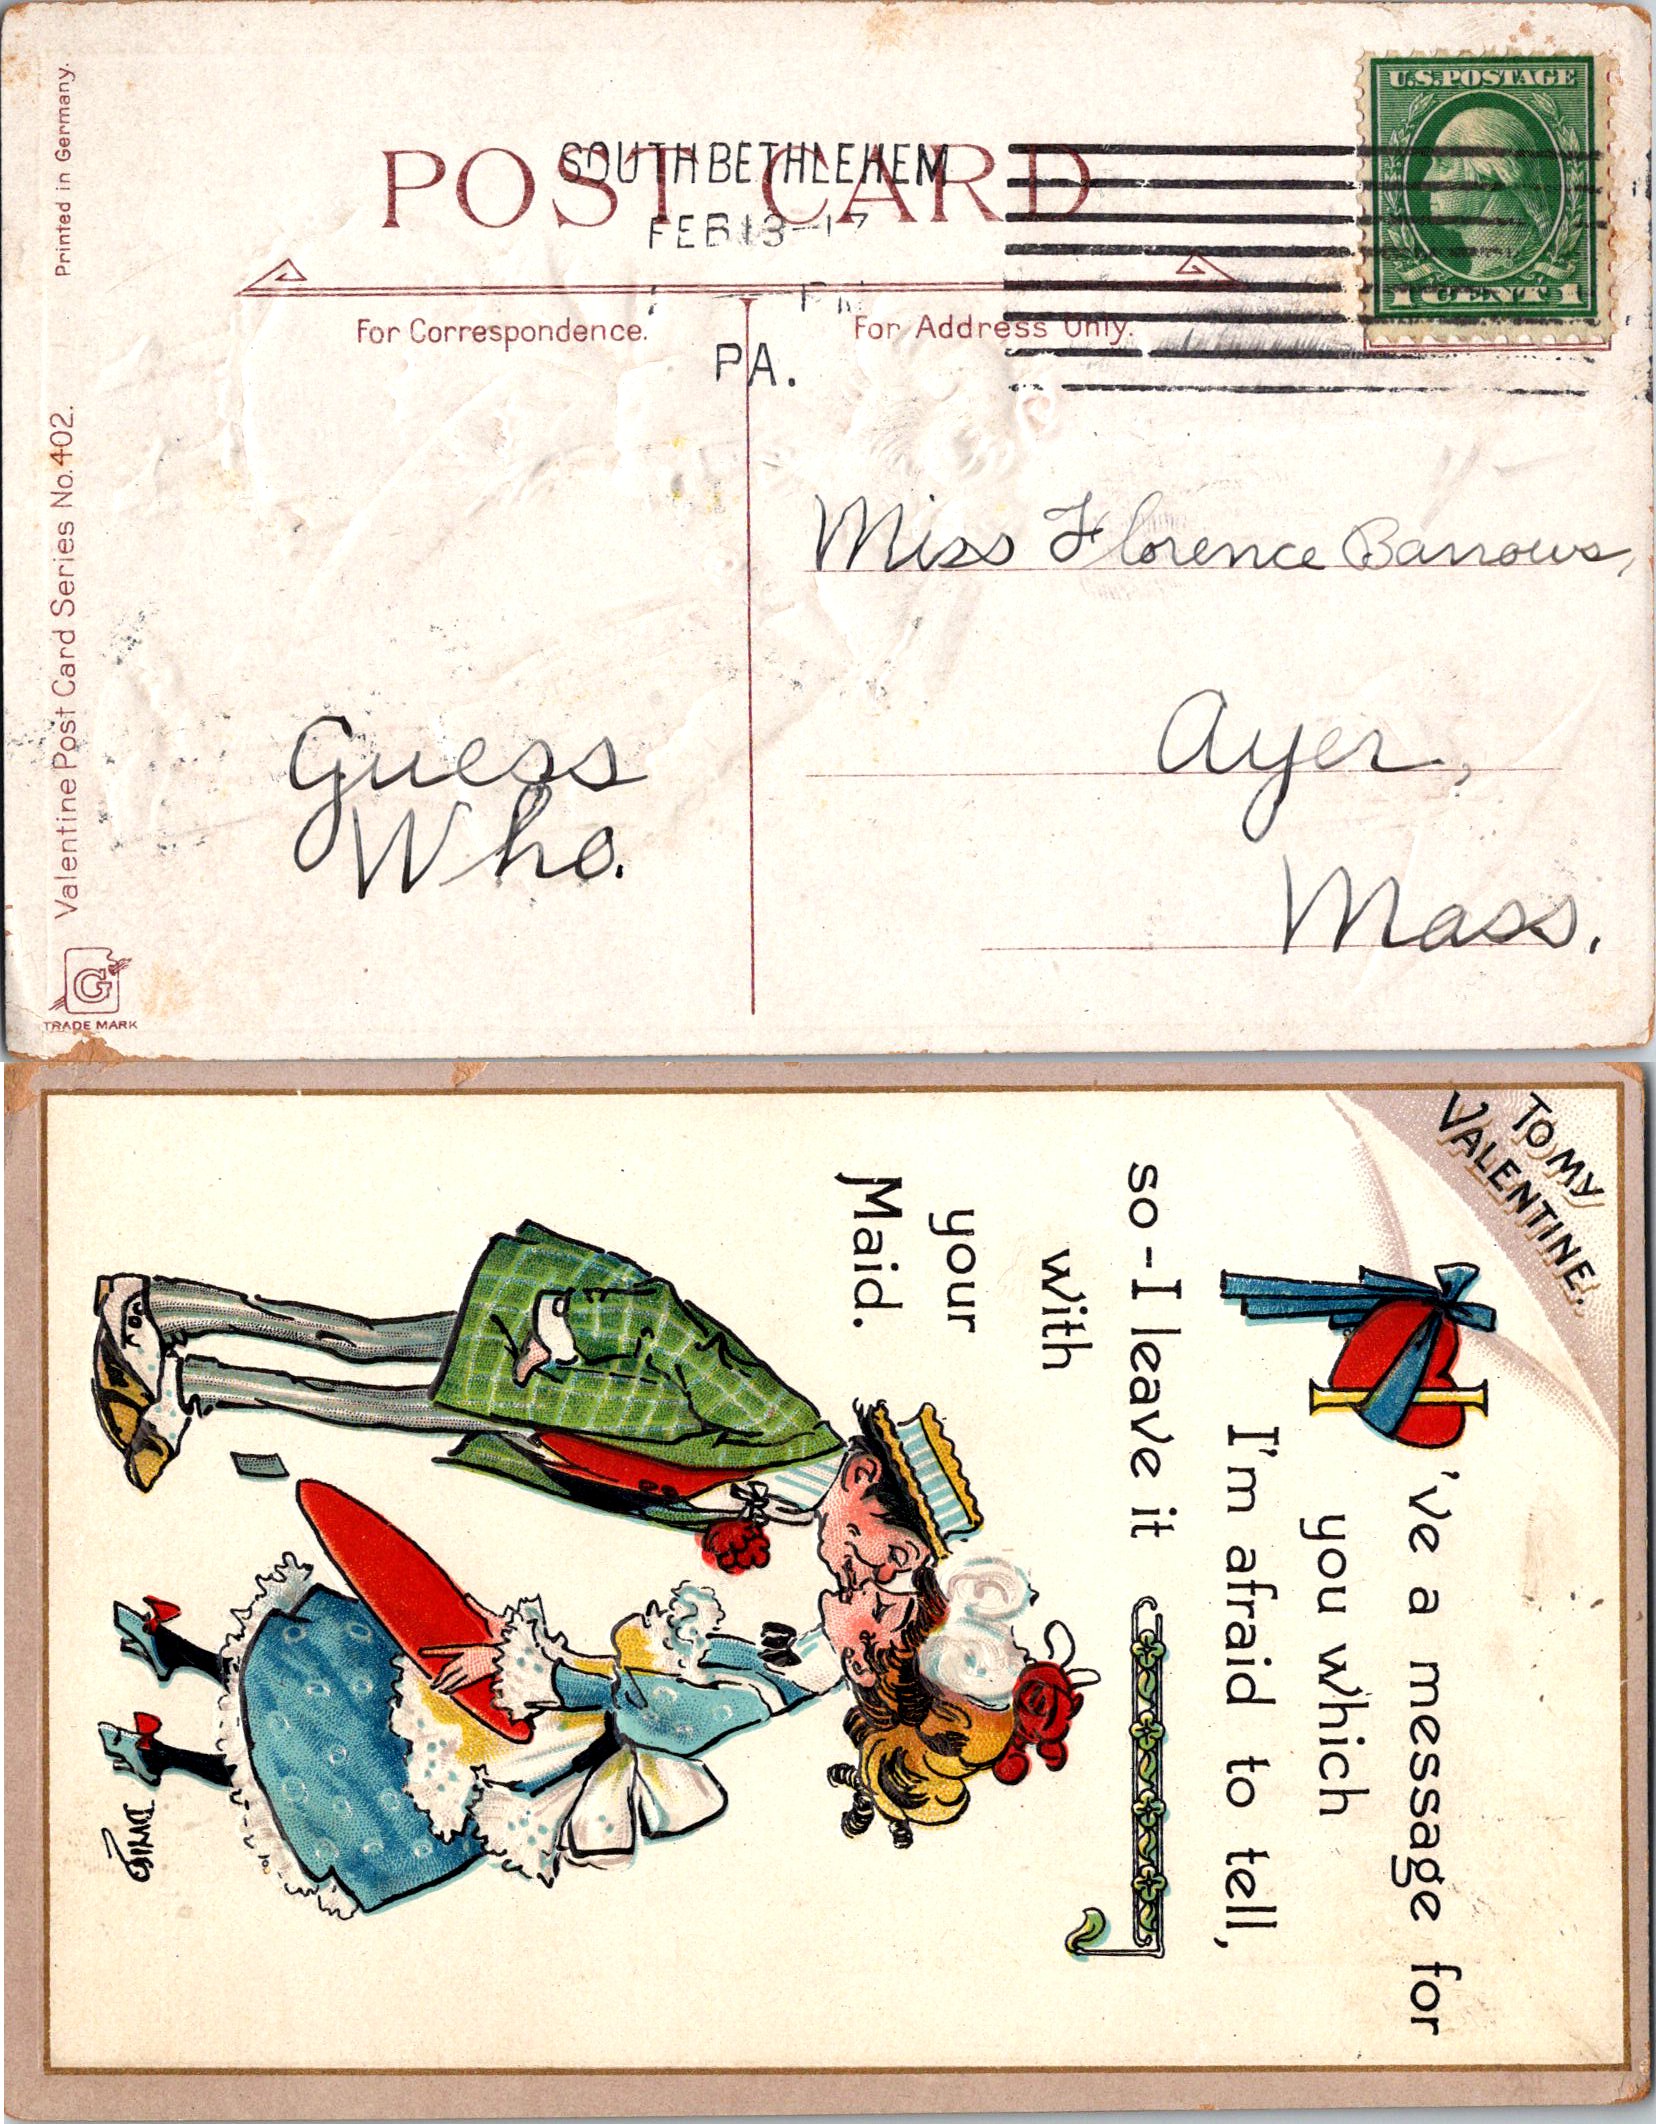 U.S. POSTAGE
1 CENT 1
SOUTH BETHLEHEM
FEB 13-17
PA.
POST CARD
For Correspondence.
For Address Only.
Miss Florence Barrows,
Ayer,
Mass.
Guess
Who.
Printed in Germany.
Valentine Post Card Series No. 402.
G
TRADE MARK
TO MY
VALENTINE.
I've a message for
you which
I'm afraid to tell,
so - I leave it
with
your
Maid.